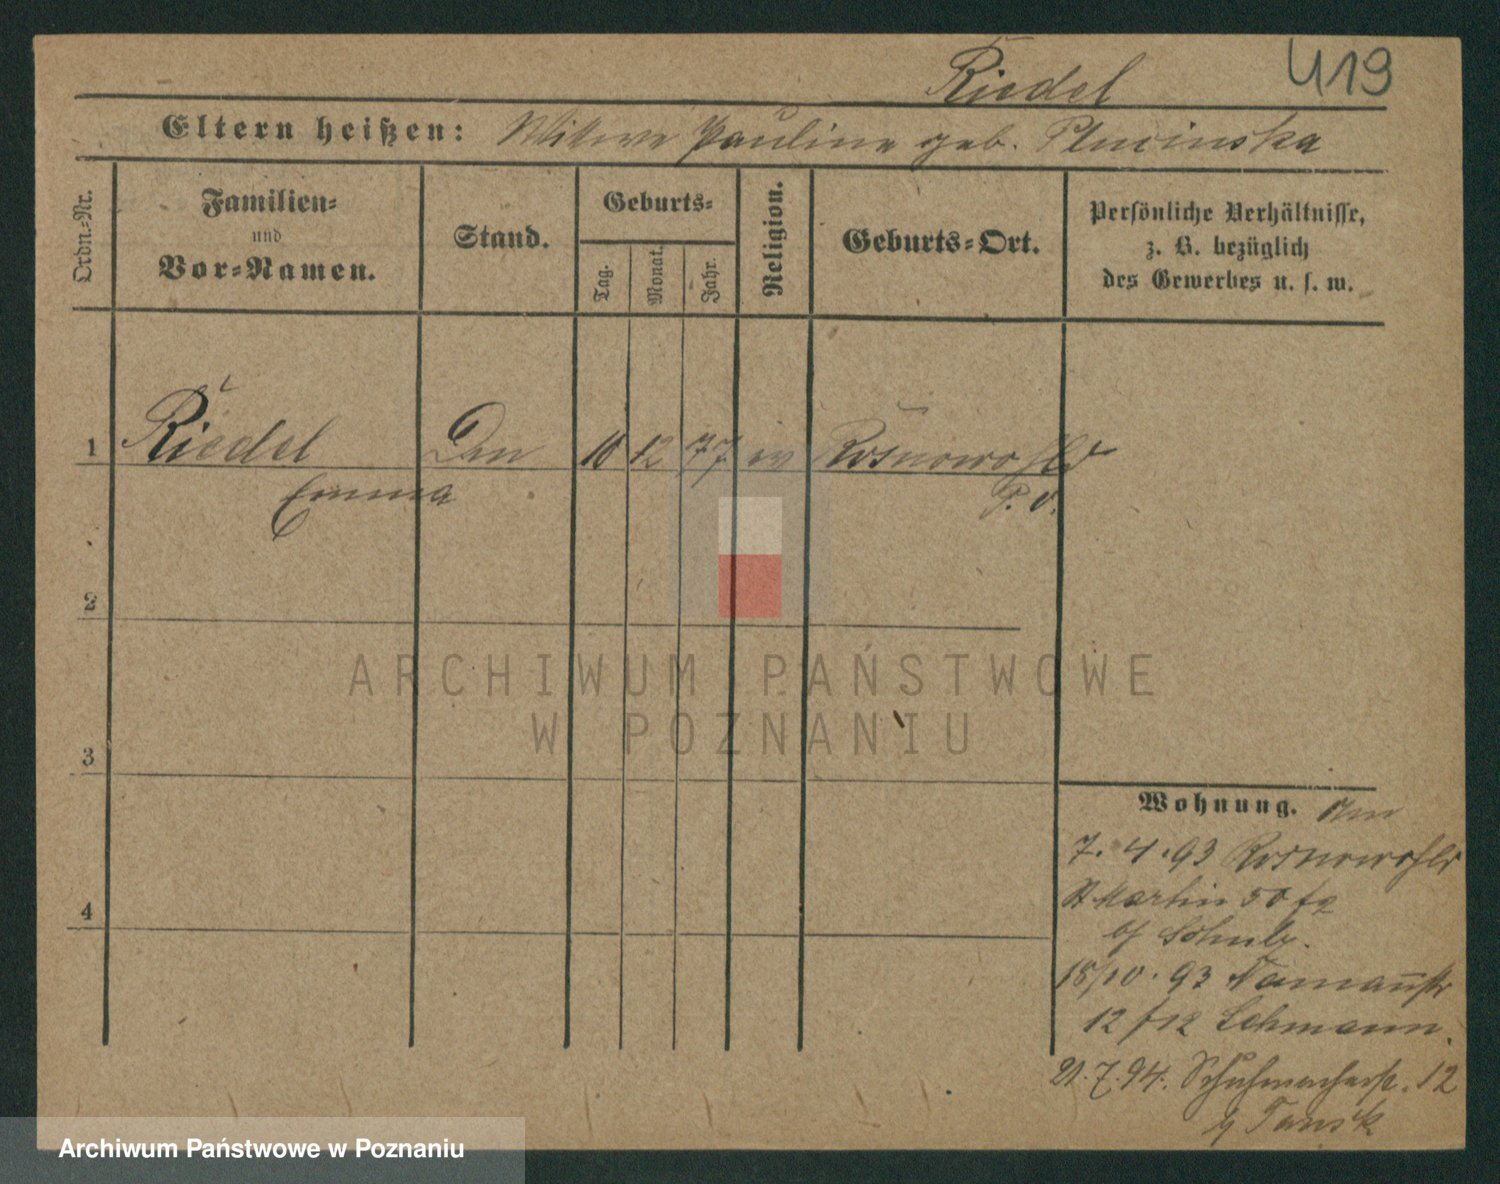 Riedel 419
Eltern heißen: Wittwe Pauline geb. Plucinska
Ordn.=Nr.
Familien=
und
Vor=Namen.
Stand.
Geburts=
Tag.
Monat.
Jahr.
Religion.
Geburts=Ort.
Persönliche Verhältnisse,
z. B. bezüglich
des Gewerbes u. s. w.
1 Riedel 10 12 77 ev Rosnowo
Emma P. O.
2
3
4
Wohnung.
7. 4. 93 Rosnowo
St Martin 50
b/ Schulz.
18/10. 93
12 Lehmann.
21. 7. 94. Schuhmacherstr. 12
ARCHIWUM PAŃSTWOWE
W POZNANIU
Archiwum Państwowe w Poznaniu